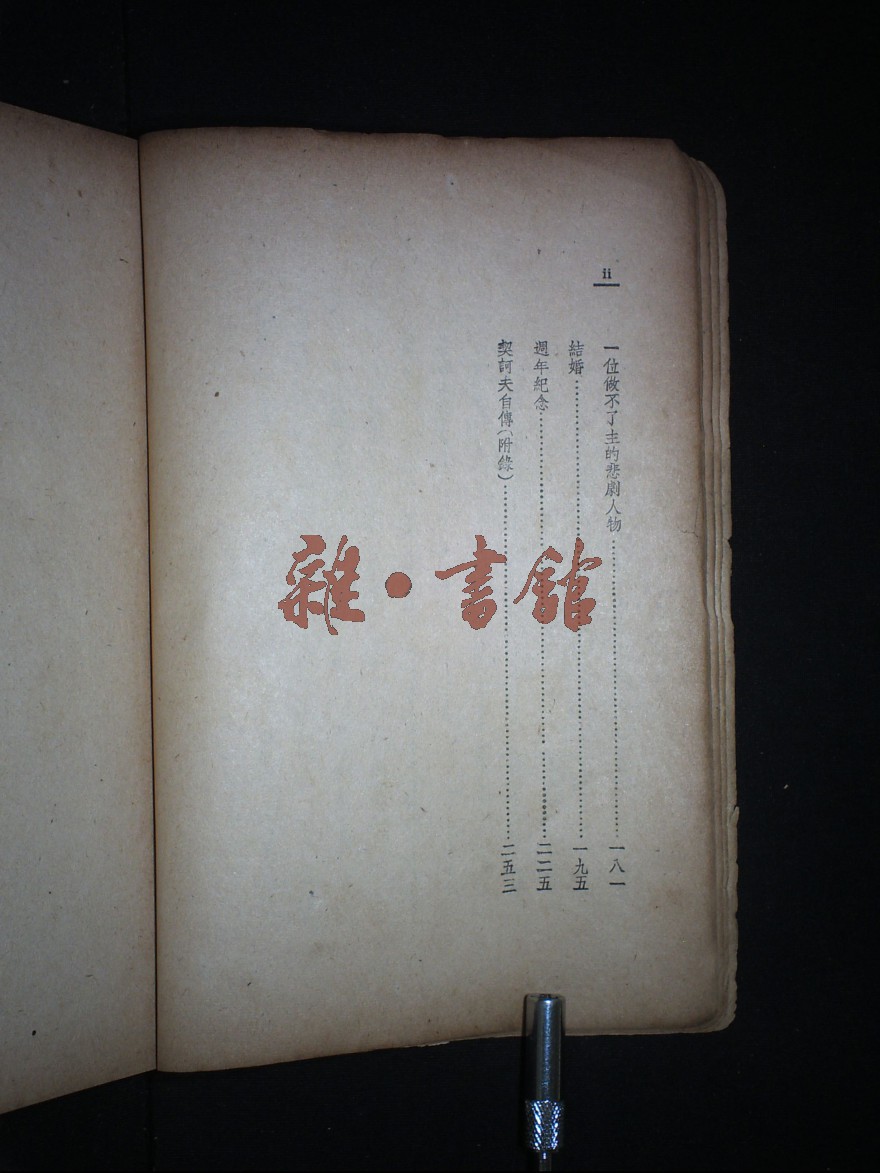 ii
一位做不了主的悲劇人物……一八一
結婚……一九五
週年紀念……二二五
契訶夫自傳(附錄)……二五三
雜·書館